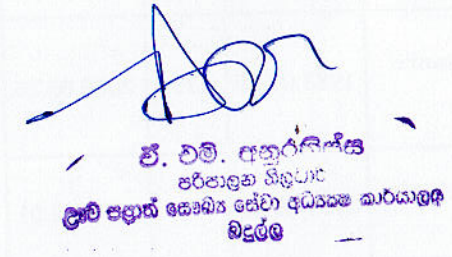 ඒ. එම්.
පරිපාලන නිලධාරි
ඌව පළාත් සෞඛ්‍ය සේවා අධ්‍යක්ෂ කාර්යාලය
බදුල්ල